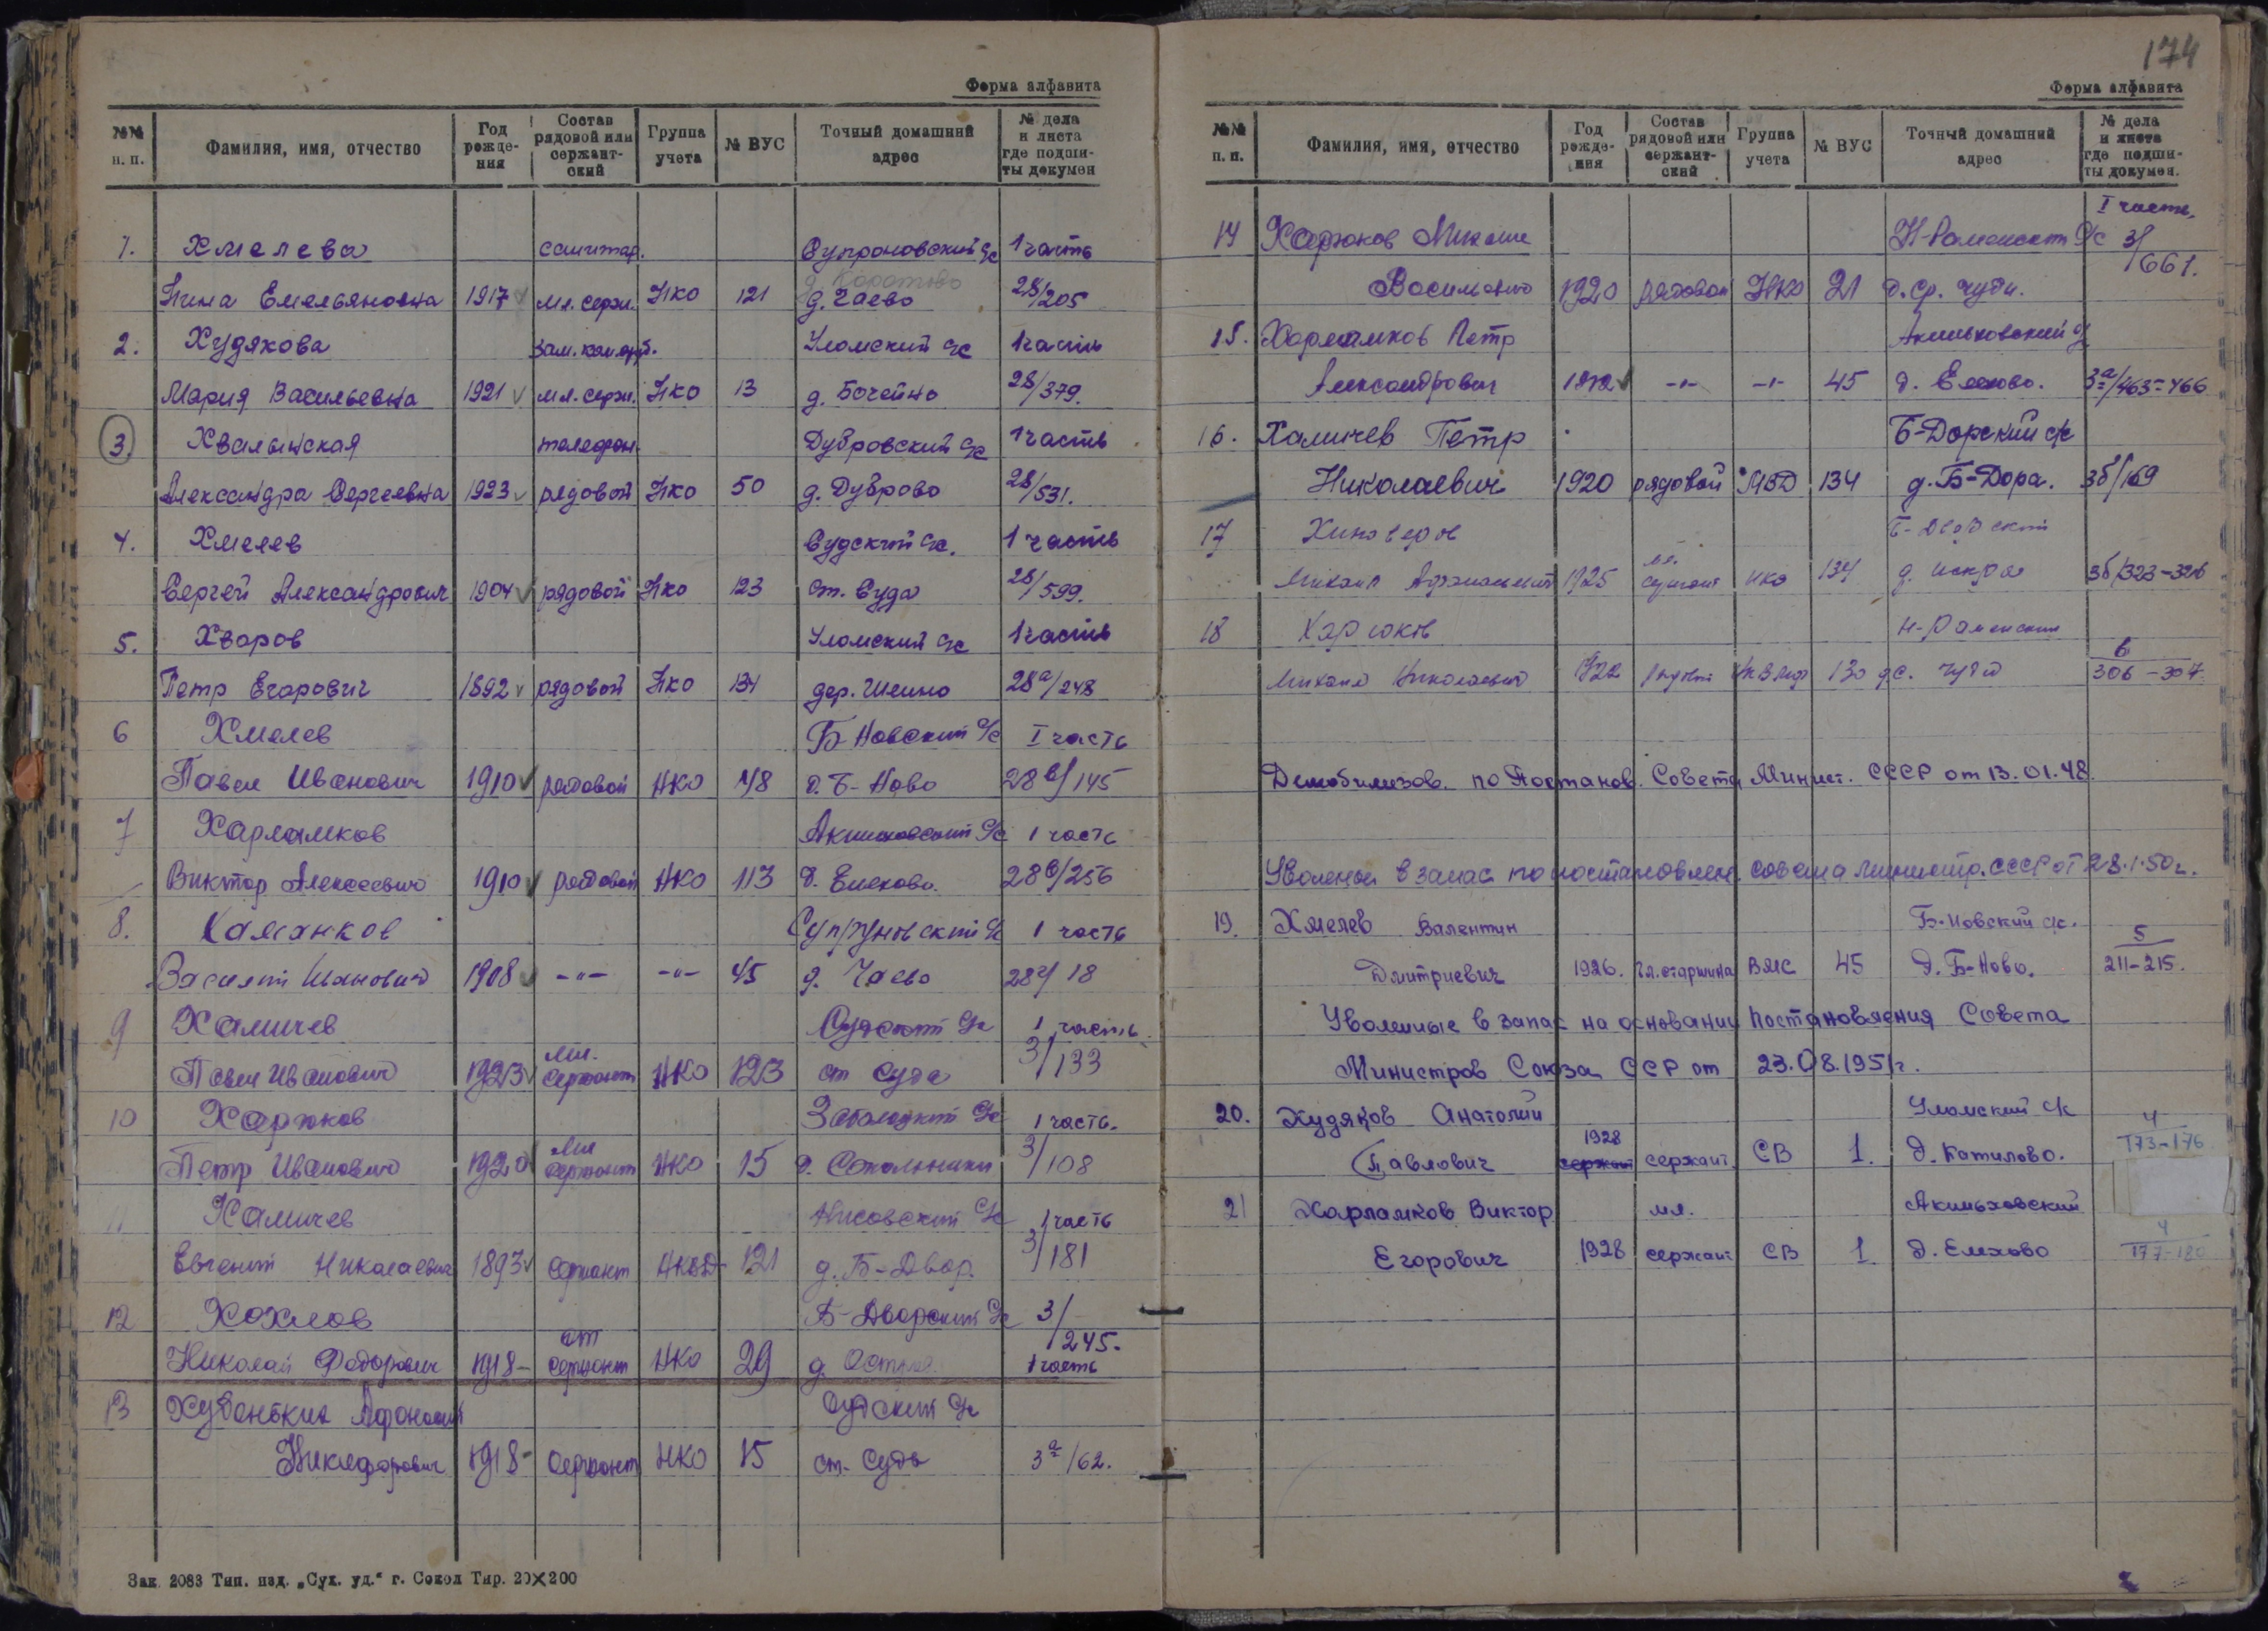 Форма алфавита
№№ н. п. Фамилия, имя, отчество Год рожде-ния Состав рядовой или сержант-ский Группа учета № ВУС Точный домашний адрес № дела и листа где подши-ты докумен
1. Хмелева санитар. Супроновский с/с 1 часть
д. Коротово
Нина Емельяновна 1917 мл. серж. НКО 121 д. Чаево 28/205
2. Худякова Уломский с/с 1 часть
Мария Васильевна 1921 мл. серж. НКО 13 д. Бочейно 28/379.
3 Хвалынская телефон. Дубровский с/с 1 часть
Александра Сергеевна 1923 рядовой НКО 50 д. Дуброво 28/531.
4. Хмелев Судский с/с. 1 часть
Сергей Александрович 1904 рядовой НКО 123 ст. Суда 28/599.
5. Хваров Уломский с/с 1 часть
Петр Егорович 1892 рядовой НКО 134 дер. Шеино 28а/248
6 Хмелев Б-Новский с/с I часть
Павел Иванович 1910 рядовой НКО 48 д. Б-Ново 28в/145
7 Харламков с/с 1 часть
Виктор Алексеевич 1910 рядовой НКО 113 д. Елехово. 28в/256
8. Хаманков Супруновский с/с 1 часть
Василий Иванович 1908 -"- -"- 45 д. Чаево 28г/18
9 Халичев Судский с/с 1 часть
Павел Иванович 1923 мл. сержант НКО 123 ст Суда 3/133
10 Харюков Заболоцкий с/с 1 часть.
Петр Иванович 1920 мл сержант НКО 15 д. Сокольники 3/108
11 Халичев с/с 1 часть
Евгений Николаевич 1893 сержант НКВД 121 д. Б-Двор. 3/181
12 Хохлов Б-Дворский с/с 3/245.
Николай Федорович 1918 ст сержант НКО 29 д. 1 часть
13 Худенькин Афонасий Судский с/с
Никифорович 1918 сержант НКО 15 ст. Суда 3а/62.
Зак. 2083 Тип. изд. „Сух. уд.“ г. Сокол Тир. 20×200
174
Форма алфавита
№№ п. п. Фамилия, имя, отчество Год рожде-ния Состав рядовой или сержант-ский Группа учета № ВУС Точный домашний адрес № дела и листа где подши-ты докумен.
I часть.
14 Харюков Н-Раменский с/с 3/661.
Васильевич 1920 рядовой НКО 21 д. Ср. Чуди.
15. Харламков Петр Акиньховский с/с
Александрович -"- -"- 45 д. Елехово. 3а/463-466
16. Халичев Петр Б-Дорский с/с
Николаевич 1920 рядовой МВД 134 д. Б-Дора. 3б/169
17 Хиноверов Б-Дворский
Михаил 1925 мл. сержант НКО 134 д. Искра 3б/323-326
18 Харюков Н-Раменский 6
Михаил Николаевич 1922 130 306-307
Демобилизов. по Постанов. Совета Минист. СССР от 13.01.48
Уволеной в запас по постановлен. совета министр. СССР от 28.1.50г.
19. Хмелев Валентин Б-Новский с/с. 5
Дмитриевич 1926. гл. старшина ВМС 45 д. Б-Ново. 211-215.
Уволенные в запас на основании Постановления Совета
Министров Союза ССР от 23.08.1951г.
20. Худяков Анатолий Уломский с/к 4
1928
Павлович сержант сержант. СВ 1. д. Катилово. 173-176
21 Харламков Виктор мл. Акиньховский 4
Егорович 1928 сержант СВ 1 д. Елехово 177-180